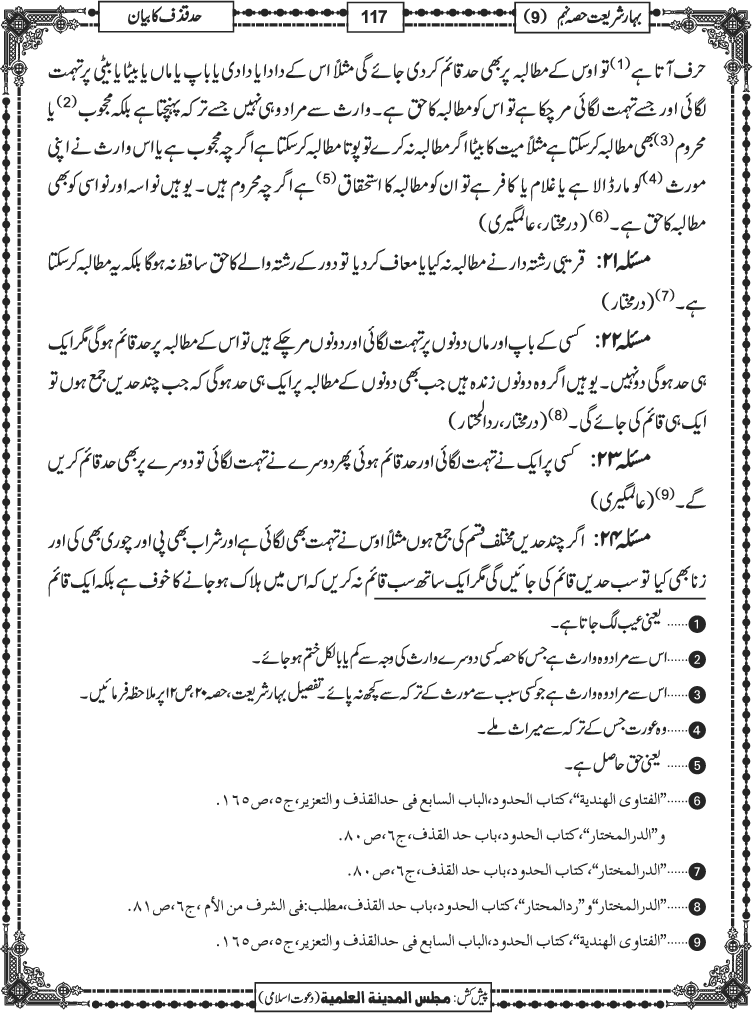 بہارِ شریعت حصہ نہم (9)
117
حد قذف کا بیان
حرف آتا ہے(1) تو اوس کے مطالبہ پر بھی حد قائم کردی جائے گی مثلاً اس کے دادا یا دادی یا باپ یا ماں یا بیٹا یا بیٹی پر تہمت
لگائی اور جسے تہمت لگائی مرچکا ہے تو اس کو مطالبہ کا حق ہے۔ وارث سے مراد وہی نہیں جسے ترکہ پہنچتا ہے بلکہ محجوب(2) یا
محروم(3) بھی مطالبہ کرسکتا ہے مثلاً میت کا بیٹا اگر مطالبہ نہ کرے تو پوتا مطالبہ کرسکتا ہے اگرچہ محجوب ہے یا اس وارث نے اپنی
مورث(4) کو مار ڈالا ہے یا غلام یا کافر ہے تو ان کو مطالبہ کا استحقاق(5) ہے اگرچہ محروم ہیں۔ یوہیں نواسہ اور نواسی کو بھی
مطالبہ کا حق ہے۔(6) (درمختار، عالمگیری)
مسئلہ ۲۱: قریبی رشتہ دار نے مطالبہ نہ کیا یا معاف کردیا تو دور کے رشتہ والے کا حق ساقط نہ ہوگا بلکہ یہ مطالبہ کرسکتا
ہے۔(7) (درمختار)
مسئلہ ۲۲: کسی کے باپ اور ماں دونوں پر تہمت لگائی اور دونوں مرچکے ہیں تو اس کے مطالبہ پر حد قائم ہوگی مگر ایک
ہی حد ہوگی دو نہیں۔ یوہیں اگر وہ دونوں زندہ ہیں جب بھی دونوں کے مطالبہ پر ایک ہی حد ہوگی کہ جب چند حدیں جمع ہوں تو
ایک ہی قائم کی جائے گی۔(8) (درمختار، ردالمحتار)
مسئلہ ۲۳: کسی پر ایک نے تہمت لگائی اور حد قائم ہوئی پھر دوسرے نے تہمت لگائی تو دوسرے پر بھی حد قائم کریں
گے۔(9) (عالمگیری)
مسئلہ ۲۴: اگر چند حدیں مختلف قسم کی جمع ہوں مثلاً اوس نے تہمت بھی لگائی ہے اور شراب بھی پی اور چوری بھی کی اور
زنا بھی کیا تو سب حدیں قائم کی جائیں گی مگر ایک ساتھ سب قائم نہ کریں کہ اس میں ہلاک ہوجانے کا خوف ہے بلکہ ایک قائم
1 ...... یعنی عیب لگ جاتا ہے۔
2 ...... اس سے مراد وہ وارث ہے جس کا حصہ کسی دوسرے وارث کی وجہ سے کم یا بالکل ختم ہوجائے۔
3 ...... اس سے مراد وہ وارث ہے جو کسی سبب سے مورث کے ترکہ سے کچھ نہ پائے۔ تفصیل بہارِ شریعت، حصہ ۲۰، ص ۱۲ پر ملاحظہ فرمائیں۔
4 ...... وہ عورت جس کے ترکہ سے میراث ملے۔
5 ...... یعنی حق حاصل ہے۔
6 ...... "الفتاوی الھندیة"، کتاب الحدود، الباب السابع فی حدالقذف والتعزیر، ج٥، ص١٦٥.
و"الدرالمختار"، کتاب الحدود، باب حد القذف، ج٦، ص٨٠.
7 ...... "الدرالمختار"، کتاب الحدود، باب حد القذف، ج٦، ص٨٠.
8 ...... "الدرالمختار" و"ردالمحتار"، کتاب الحدود، باب حد القذف، مطلب: فی الشرف من الأم، ج٦، ص٨١.
9 ...... "الفتاوی الھندیة"، کتاب الحدود، الباب السابع فی حدالقذف والتعزیر، ج٥، ص١٦٥.
پیش کش: مجلس المدینة العلمیة (دعوت اسلامی)